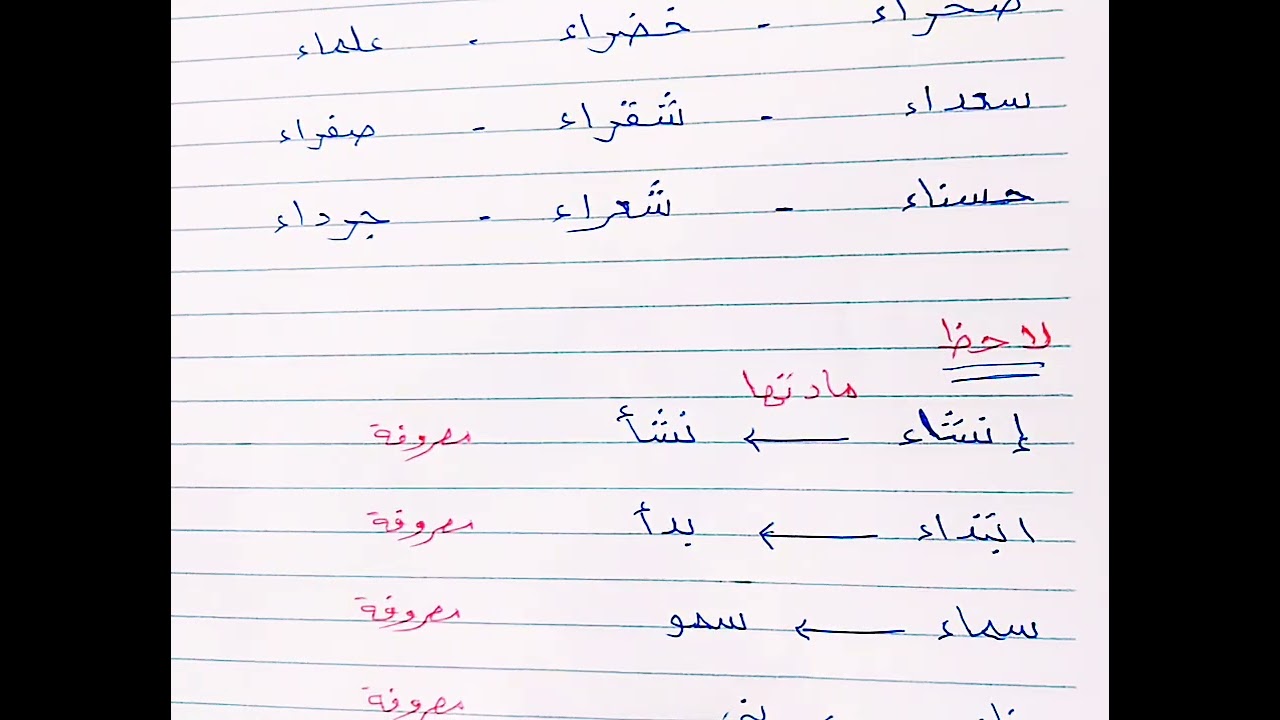 صحراء - خضراء - علماء
سعداء - شقراء - صفراء
حسناء - شعراء - جرداء
لاحظ
مادتها
إنشاء ← نشأ مصروفة
ابتداء ← بدأ مصروفة
سماء ← سمو مصروفة
مصروفة